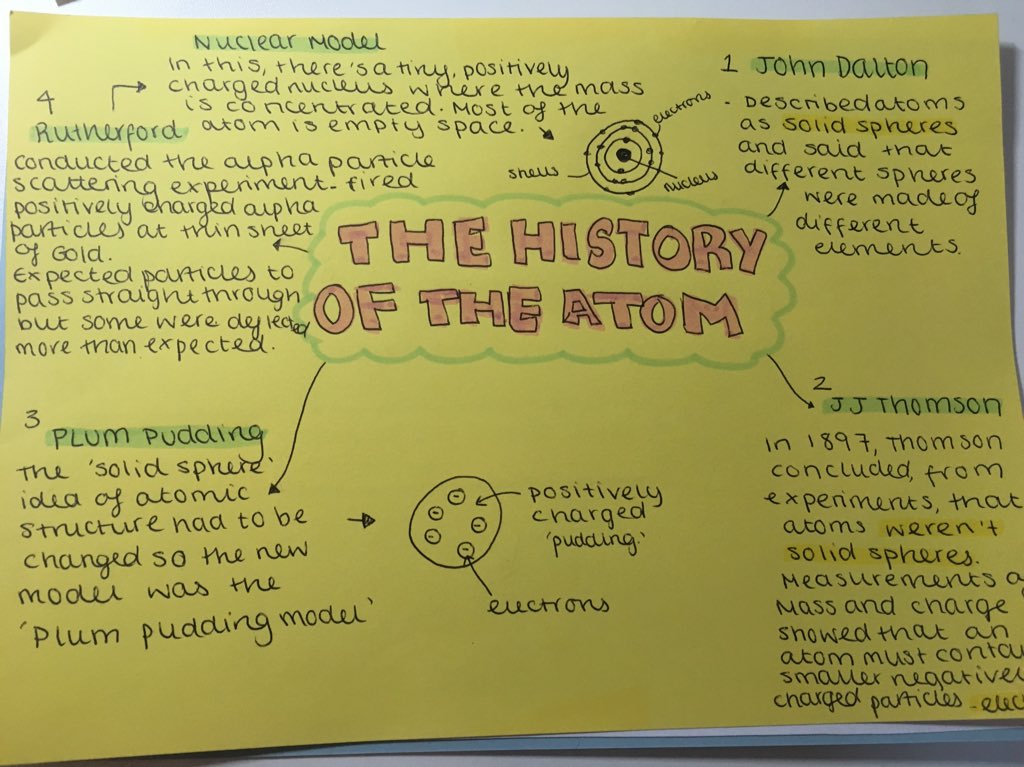 THE HISTORY
OF THE ATOM
1 John Dalton
- Described atoms
as solid spheres
and said that
different spheres
were made of
different
elements.
2
JJ Thomson
In 1897, Thomson
concluded, from
experiments, that
atoms weren't
solid spheres.
Measurements
Mass and charge
showed that an
atom must
smaller
charged particles -
3
Plum Pudding
The 'solid sphere'
idea of atomic
structure had to be
changed so the new
model was the
'Plum pudding model'
positively
charged
'pudding.'
electrons
4
Rutherford
conducted the alpha particle
scattering experiment - fired
positively charged alpha
particles at thin sheet
of Gold.
Expected particles to
pass straight through
but some were deflected
more than expected.
Nuclear Model
In this, there's a tiny, positively
charged nucleus where the mass
is concentrated. Most of the
atom is empty space.
electrons
shells
nucleus